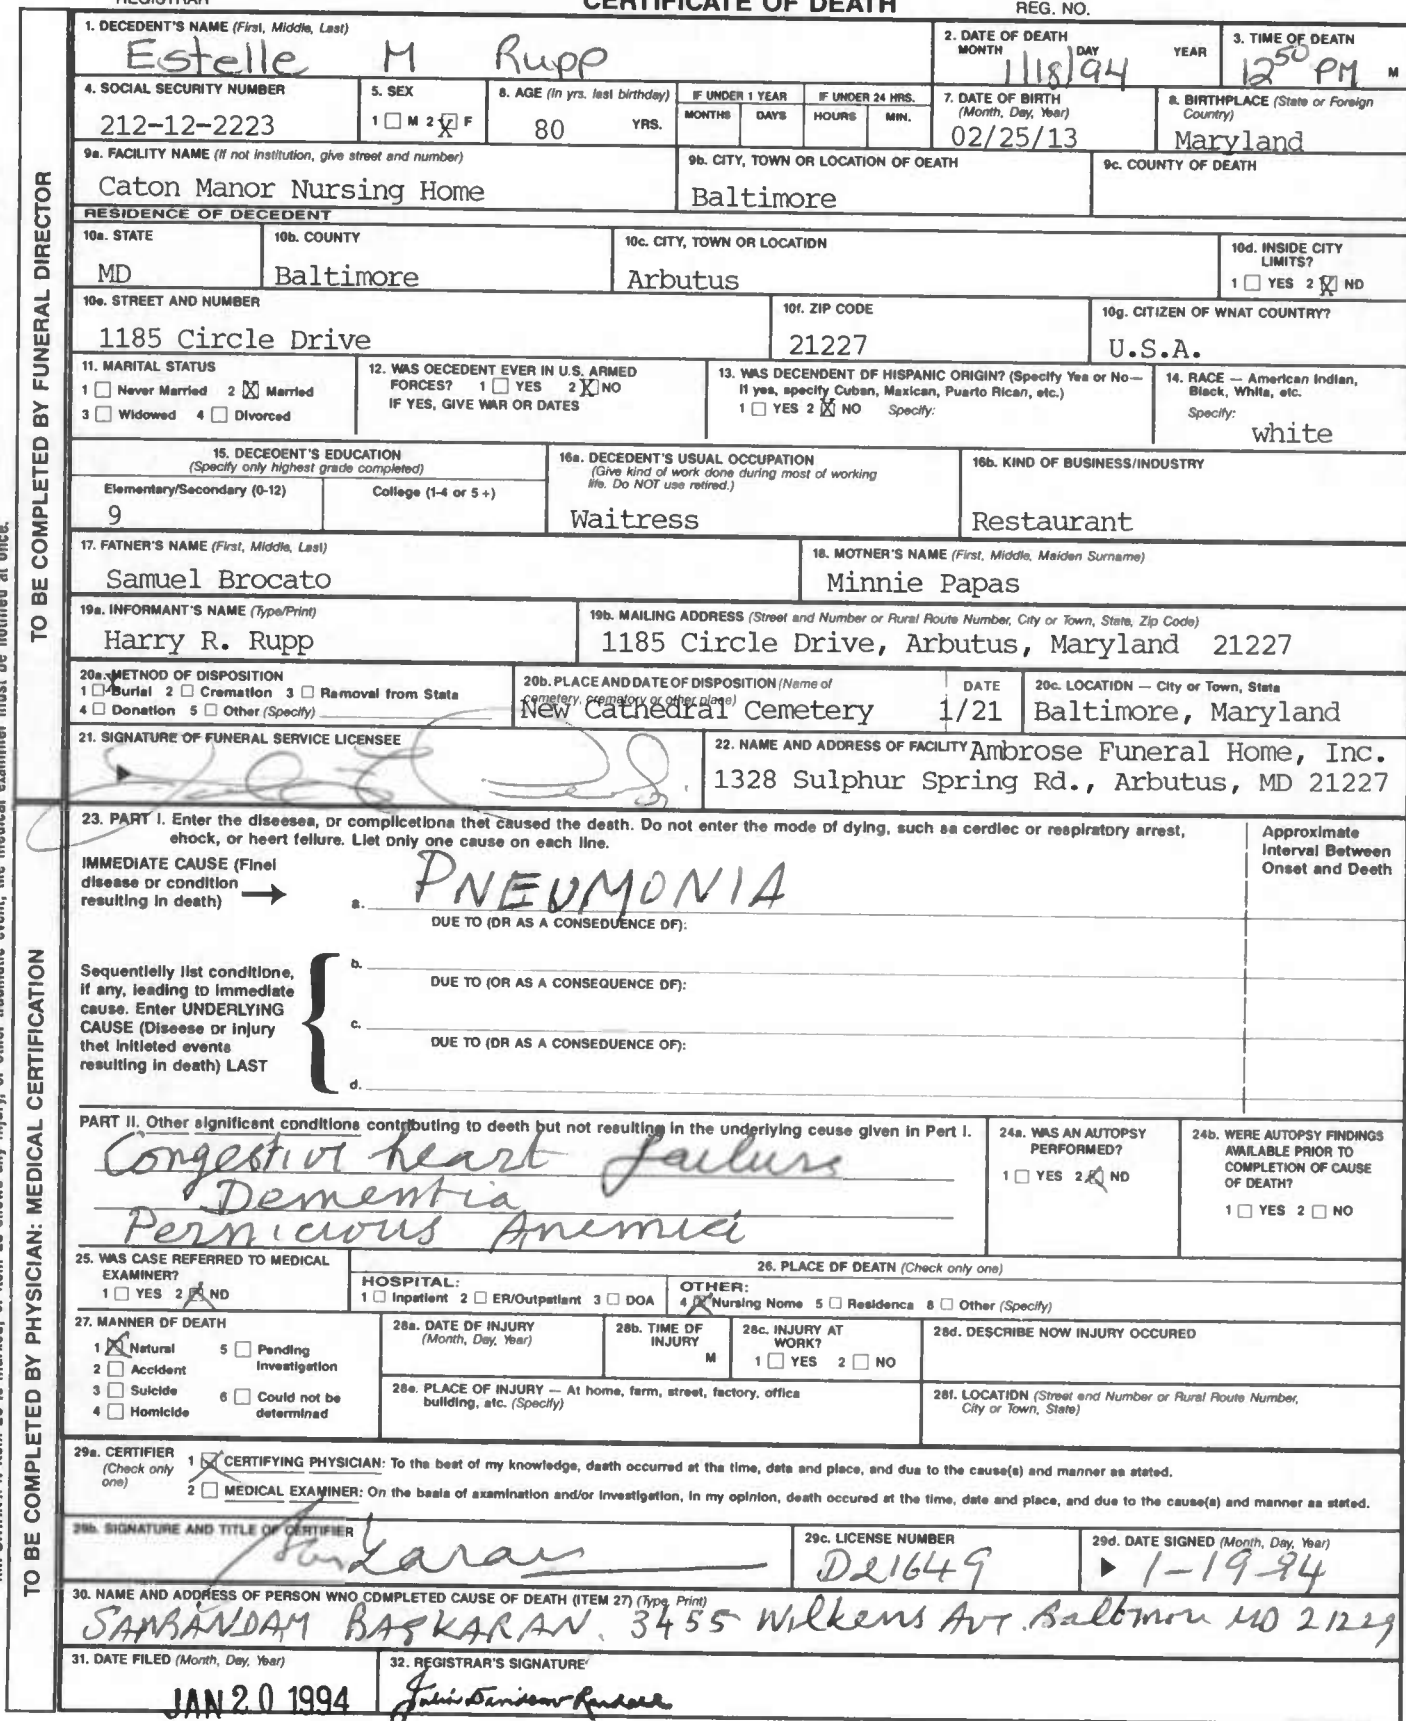 REGISTRAR CERTIFICATE OF DEATH REG. NO.
1. DECEDENT'S NAME (First, Middle, Last)
Estelle M Rupp
2. DATE OF DEATH
MONTH DAY YEAR
1/18/94
3. TIME OF DEATH
12 50 PM M
4. SOCIAL SECURITY NUMBER
212-12-2223
5. SEX
1 ☐ M 2 ☒ F
6. AGE (In yrs. last birthday)
80 YRS.
IF UNDER 1 YEAR
MONTHS DAYS
IF UNDER 24 HRS.
HOURS MIN.
7. DATE OF BIRTH
(Month, Day, Year)
02/25/13
8. BIRTHPLACE (State or Foreign
Country)
Maryland
9a. FACILITY NAME (If not institution, give street and number)
Caton Manor Nursing Home
9b. CITY, TOWN OR LOCATION OF DEATH
Baltimore
9c. COUNTY OF DEATH
RESIDENCE OF DECEDENT
10a. STATE
MD
10b. COUNTY
Baltimore
10c. CITY, TOWN OR LOCATION
Arbutus
10d. INSIDE CITY
LIMITS?
1 ☐ YES 2 ☒ NO
10e. STREET AND NUMBER
1185 Circle Drive
10f. ZIP CODE
21227
10g. CITIZEN OF WHAT COUNTRY?
U.S.A.
11. MARITAL STATUS
1 ☐ Never Married 2 ☒ Married
3 ☐ Widowed 4 ☐ Divorced
12. WAS DECEDENT EVER IN U.S. ARMED
FORCES? 1 ☐ YES 2 ☒ NO
IF YES, GIVE WAR OR DATES
13. WAS DECENDENT OF HISPANIC ORIGIN? (Specify Yes or No—
If yes, specify Cuban, Mexican, Puerto Rican, etc.)
1 ☐ YES 2 ☒ NO Specify:
14. RACE — American Indian,
Black, White, etc.
Specify:
white
15. DECEDENT'S EDUCATION
(Specify only highest grade completed)
Elementary/Secondary (0-12) College (1-4 or 5+)
9
16a. DECEDENT'S USUAL OCCUPATION
(Give kind of work done during most of working
life. Do NOT use retired.)
Waitress
16b. KIND OF BUSINESS/INDUSTRY
Restaurant
17. FATHER'S NAME (First, Middle, Last)
Samuel Brocato
18. MOTHER'S NAME (First, Middle, Maiden Surname)
Minnie Papas
19a. INFORMANT'S NAME (Type/Print)
Harry R. Rupp
19b. MAILING ADDRESS (Street and Number or Rural Route Number, City or Town, State, Zip Code)
1185 Circle Drive, Arbutus, Maryland 21227
20a. METHOD OF DISPOSITION
1 ☒ Burial 2 ☐ Cremation 3 ☐ Removal from State
4 ☐ Donation 5 ☐ Other (Specify)
20b. PLACE AND DATE OF DISPOSITION (Name of
cemetery, crematory or other place) DATE
New Cathedral Cemetery 1/21
20c. LOCATION — City or Town, State
Baltimore, Maryland
21. SIGNATURE OF FUNERAL SERVICE LICENSEE
22. NAME AND ADDRESS OF FACILITY Ambrose Funeral Home, Inc.
1328 Sulphur Spring Rd., Arbutus, MD 21227
TO BE COMPLETED BY FUNERAL DIRECTOR
23. PART I. Enter the diseases, or complications that caused the death. Do not enter the mode of dying, such as cardiac or respiratory arrest,
shock, or heart failure. List only one cause on each line.
Approximate
Interval Between
Onset and Death
IMMEDIATE CAUSE (Final
disease or condition
resulting in death) →
a. PNEUMONIA
DUE TO (OR AS A CONSEQUENCE OF):
Sequentially list conditions,
if any, leading to immediate
cause. Enter UNDERLYING
CAUSE (Disease or injury
that initiated events
resulting in death) LAST
b.
DUE TO (OR AS A CONSEQUENCE OF):
c.
DUE TO (OR AS A CONSEQUENCE OF):
d.
PART II. Other significant conditions contributing to death but not resulting in the underlying cause given in Part I.
Congestive heart failure
Dementia
Pernicious Anemia
24a. WAS AN AUTOPSY
PERFORMED?
1 ☐ YES 2 ☒ NO
24b. WERE AUTOPSY FINDINGS
AVAILABLE PRIOR TO
COMPLETION OF CAUSE
OF DEATH?
1 ☐ YES 2 ☐ NO
25. WAS CASE REFERRED TO MEDICAL
EXAMINER?
1 ☐ YES 2 ☒ NO
26. PLACE OF DEATH (Check only one)
HOSPITAL:
1 ☐ Inpatient 2 ☐ ER/Outpatient 3 ☐ DOA
OTHER:
4 ☒ Nursing Home 5 ☐ Residence 6 ☐ Other (Specify)
27. MANNER OF DEATH
1 ☒ Natural 5 ☐ Pending
2 ☐ Accident Investigation
3 ☐ Suicide 6 ☐ Could not be
4 ☐ Homicide determined
28a. DATE OF INJURY
(Month, Day, Year)
28b. TIME OF
INJURY
M
28c. INJURY AT
WORK?
1 ☐ YES 2 ☐ NO
28d. DESCRIBE HOW INJURY OCCURED
28e. PLACE OF INJURY — At home, farm, street, factory, office
building, etc. (Specify)
28f. LOCATION (Street and Number or Rural Route Number,
City or Town, State)
29a. CERTIFIER
(Check only
one)
1 ☒ CERTIFYING PHYSICIAN: To the best of my knowledge, death occurred at the time, date and place, and due to the cause(s) and manner as stated.
2 ☐ MEDICAL EXAMINER: On the basis of examination and/or investigation, in my opinion, death occured at the time, date and place, and due to the cause(s) and manner as stated.
29b. SIGNATURE AND TITLE OF CERTIFIER
29c. LICENSE NUMBER
D21649
29d. DATE SIGNED (Month, Day, Year)
▶ 1-19-94
30. NAME AND ADDRESS OF PERSON WHO COMPLETED CAUSE OF DEATH (ITEM 27) (Type, Print)
SAMBANDAM BASKARAN. 3455 Wilkens Ave. Baltimore MD 21229
31. DATE FILED (Month, Day, Year)
JAN 20 1994
32. REGISTRAR'S SIGNATURE
TO BE COMPLETED BY PHYSICIAN: MEDICAL CERTIFICATION